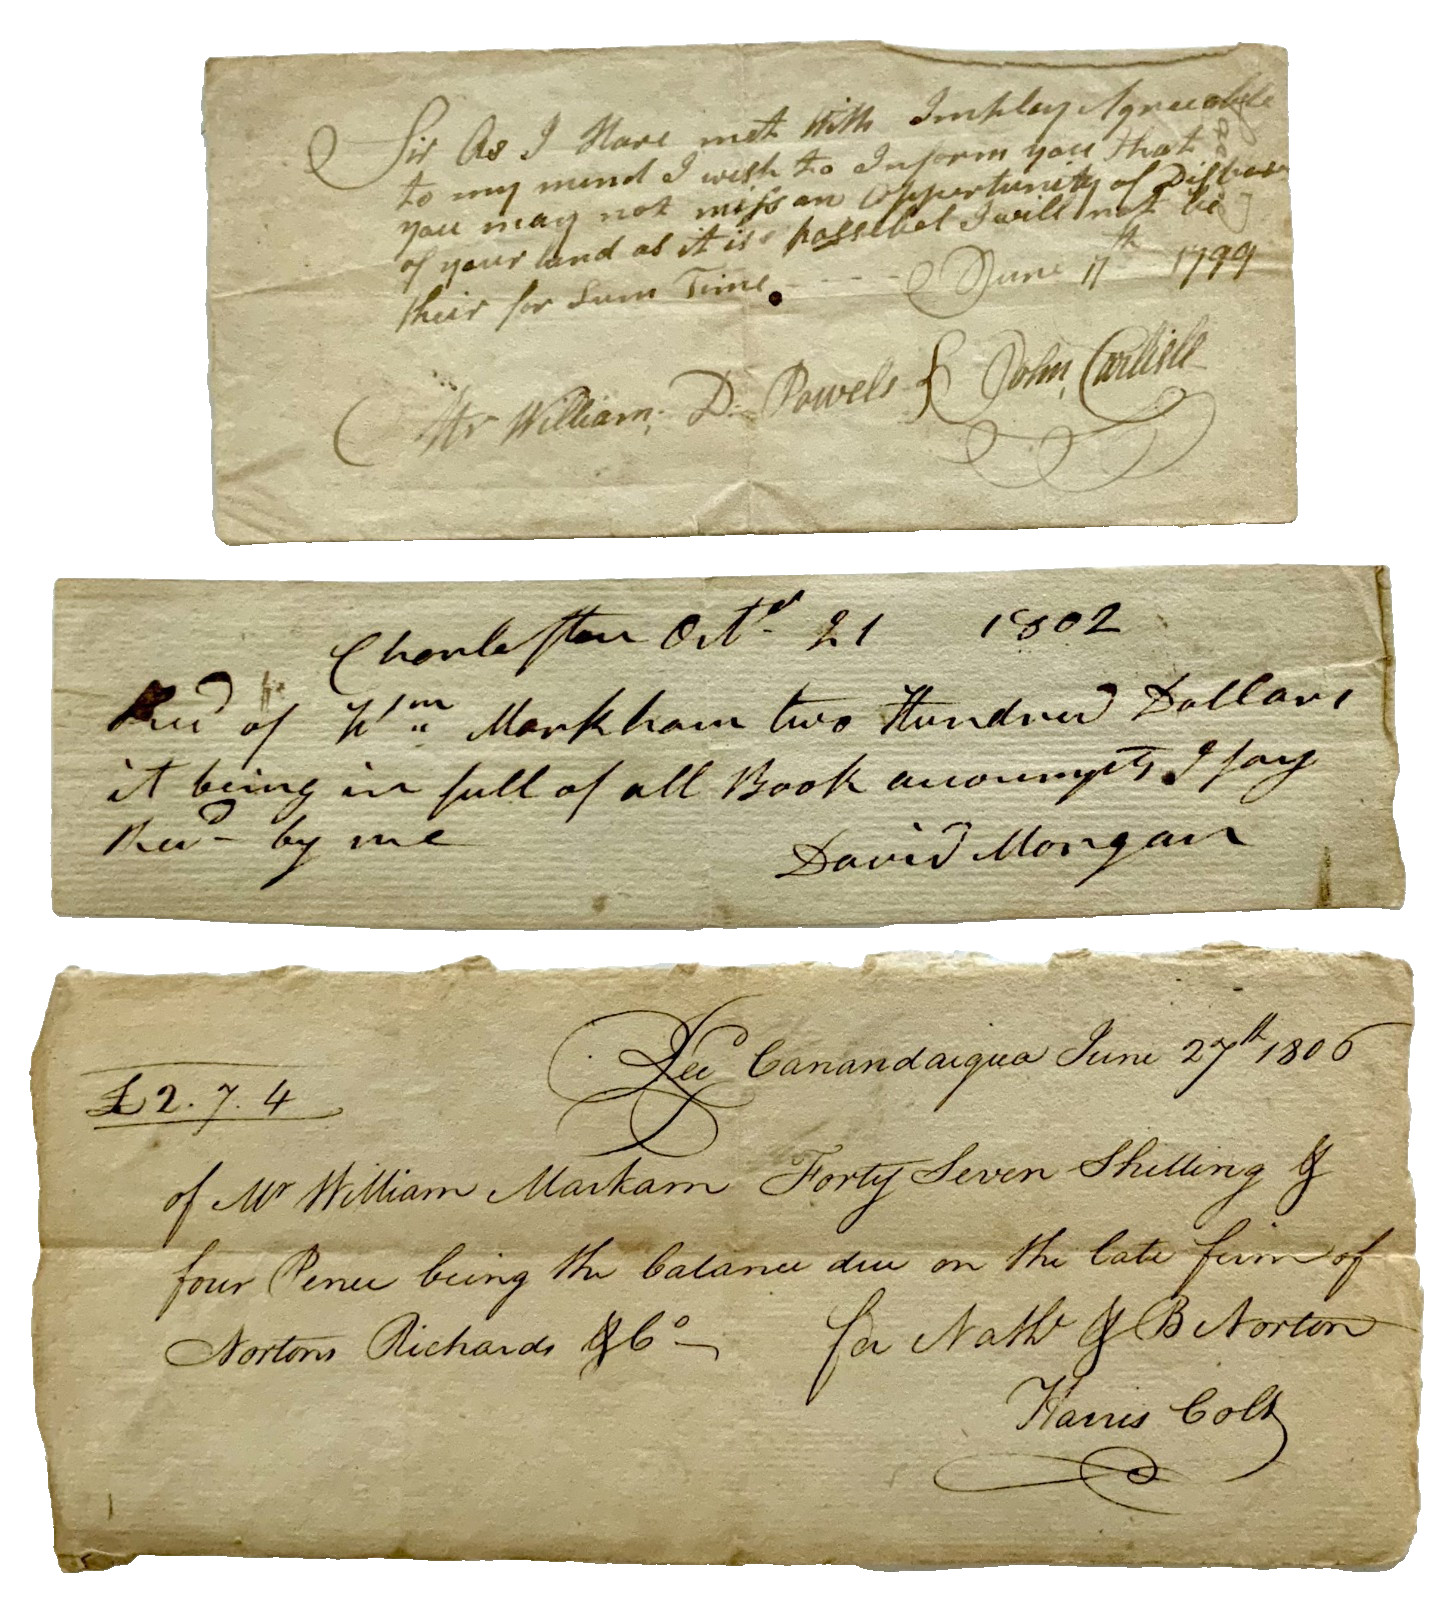 Sir As I Have met With Imploy Agreeable
to my mind I wish to Inform you that
you may not miss an Oppertunity of Dispose
of your land as it is possebel I will not be
their for Sum Time. - - - - June 17th 1799
Mr William, D. Powels { John Carlisle
Charleston Octr 21 1802
Recd of Wm Markham two Hundred Dollars
it being in full of all Book accoumpts I say
Recd by me David Morgan
Recd Canandaigua June 27th 1806
£2.7.4
of Mr William Markam Forty Seven Shilling &
four Pence being the balance due on the late firm of
Nortons Richards & Co for Nathl & B Norton
Harris Colt